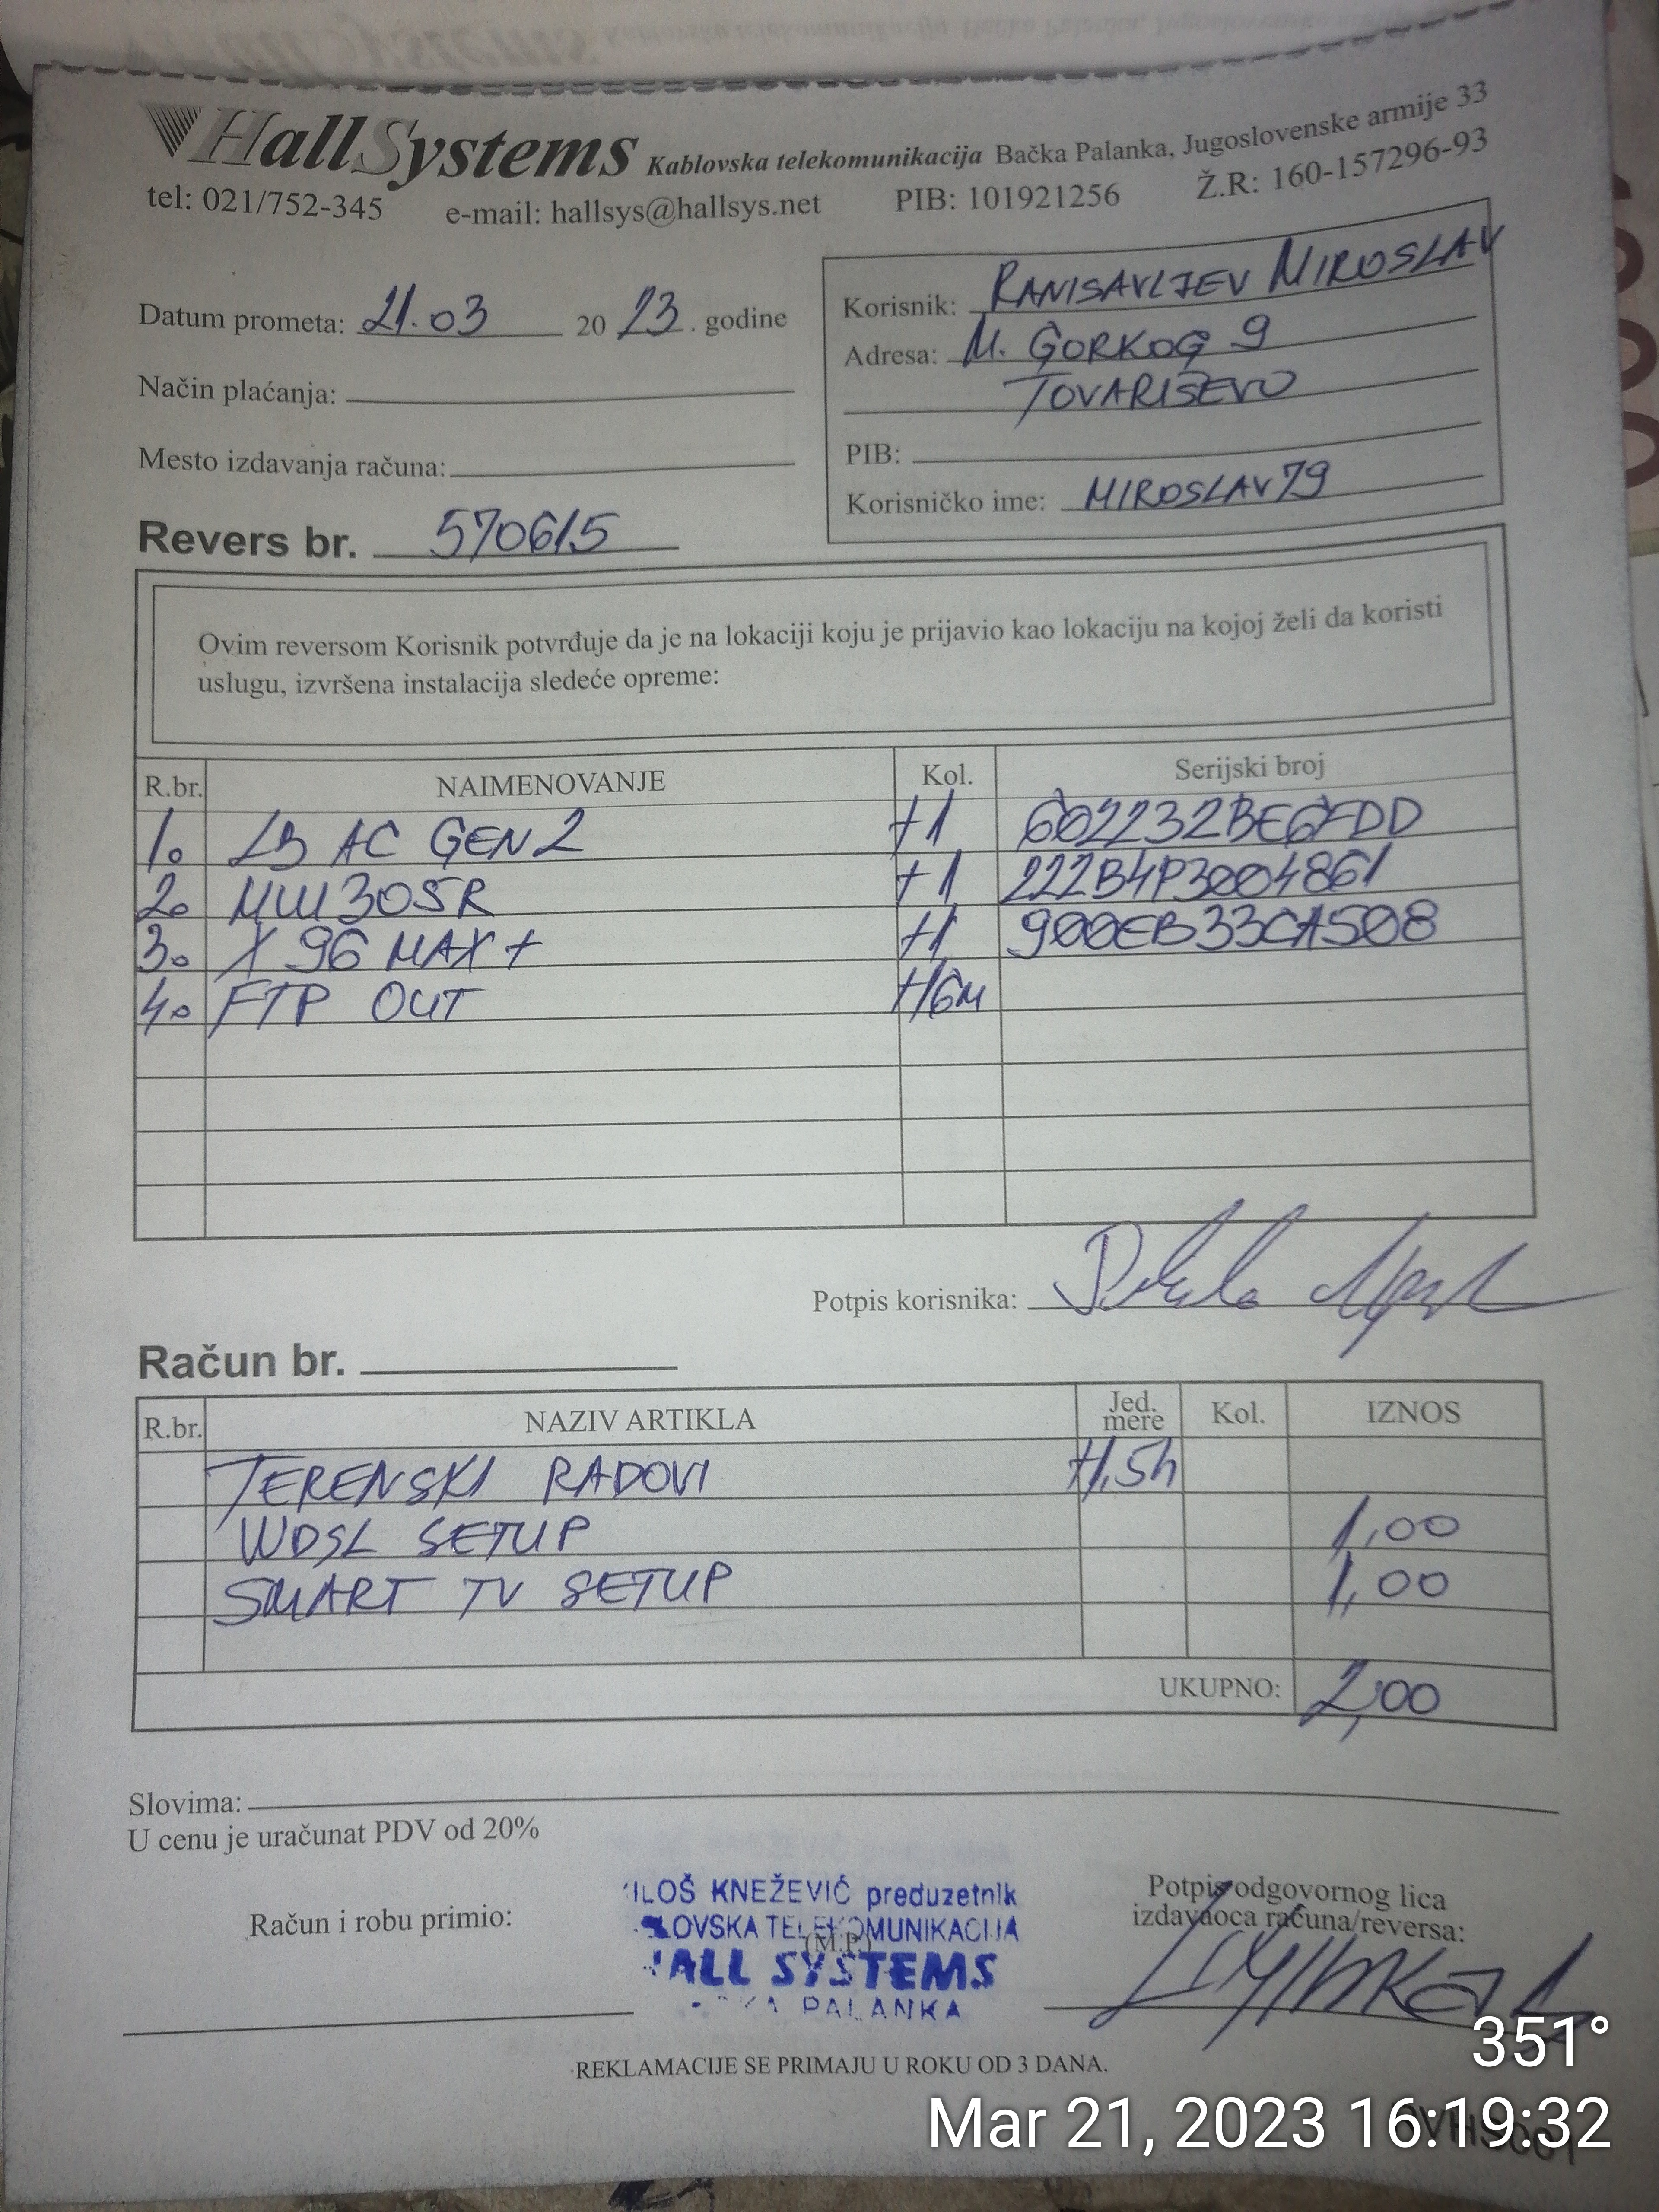 HallSystems Kablovska telekomunikacija Bačka Palanka, Jugoslovenske armije 33
tel: 021/752-345 e-mail: hallsys@hallsys.net PIB: 101921256 Ž.R: 160-157296-93
Datum prometa: 21.03 2023. godine
Način plaćanja:
Mesto izdavanja računa:
Korisnik: RANISAVLJEV MIROSLAV
Adresa: M. GORKOG 9
TOVARIŠEVO
PIB:
Korisničko ime: MIROSLAV79
Revers br. 570615
Ovim reversom Korisnik potvrđuje da je na lokaciji koju je prijavio kao lokaciju na kojoj želi da koristi
uslugu, izvršena instalacija sledeće opreme:
R.br. NAIMENOVANJE Kol. Serijski broj
1. LB AC GEN2 +1 602232BE6FDD
2. MW305R +1 222B4P3004861
3. X96 MAX+ +1 900EB33CA508
4. FTP OUT +16m
Potpis korisnika:
Račun br.
R.br. NAZIV ARTIKLA Jed. mere Kol. IZNOS
TERENSKI RADOVI +1,5h
WDSL SETUP 1,00
SMART TV SETUP 1,00
UKUPNO: 2,00
Slovima:
U cenu je uračunat PDV od 20%
Račun i robu primio:
ILOŠ KNEŽEVIĆ preduzetnik
LOVSKA TELEKOMUNIKACIJA
(M.P.)
ALL SYSTEMS
KA PALANKA
Potpis odgovornog lica
izdavaoca računa/reversa:
REKLAMACIJE SE PRIMAJU U ROKU OD 3 DANA.
351°
Mar 21, 2023 16:19:32